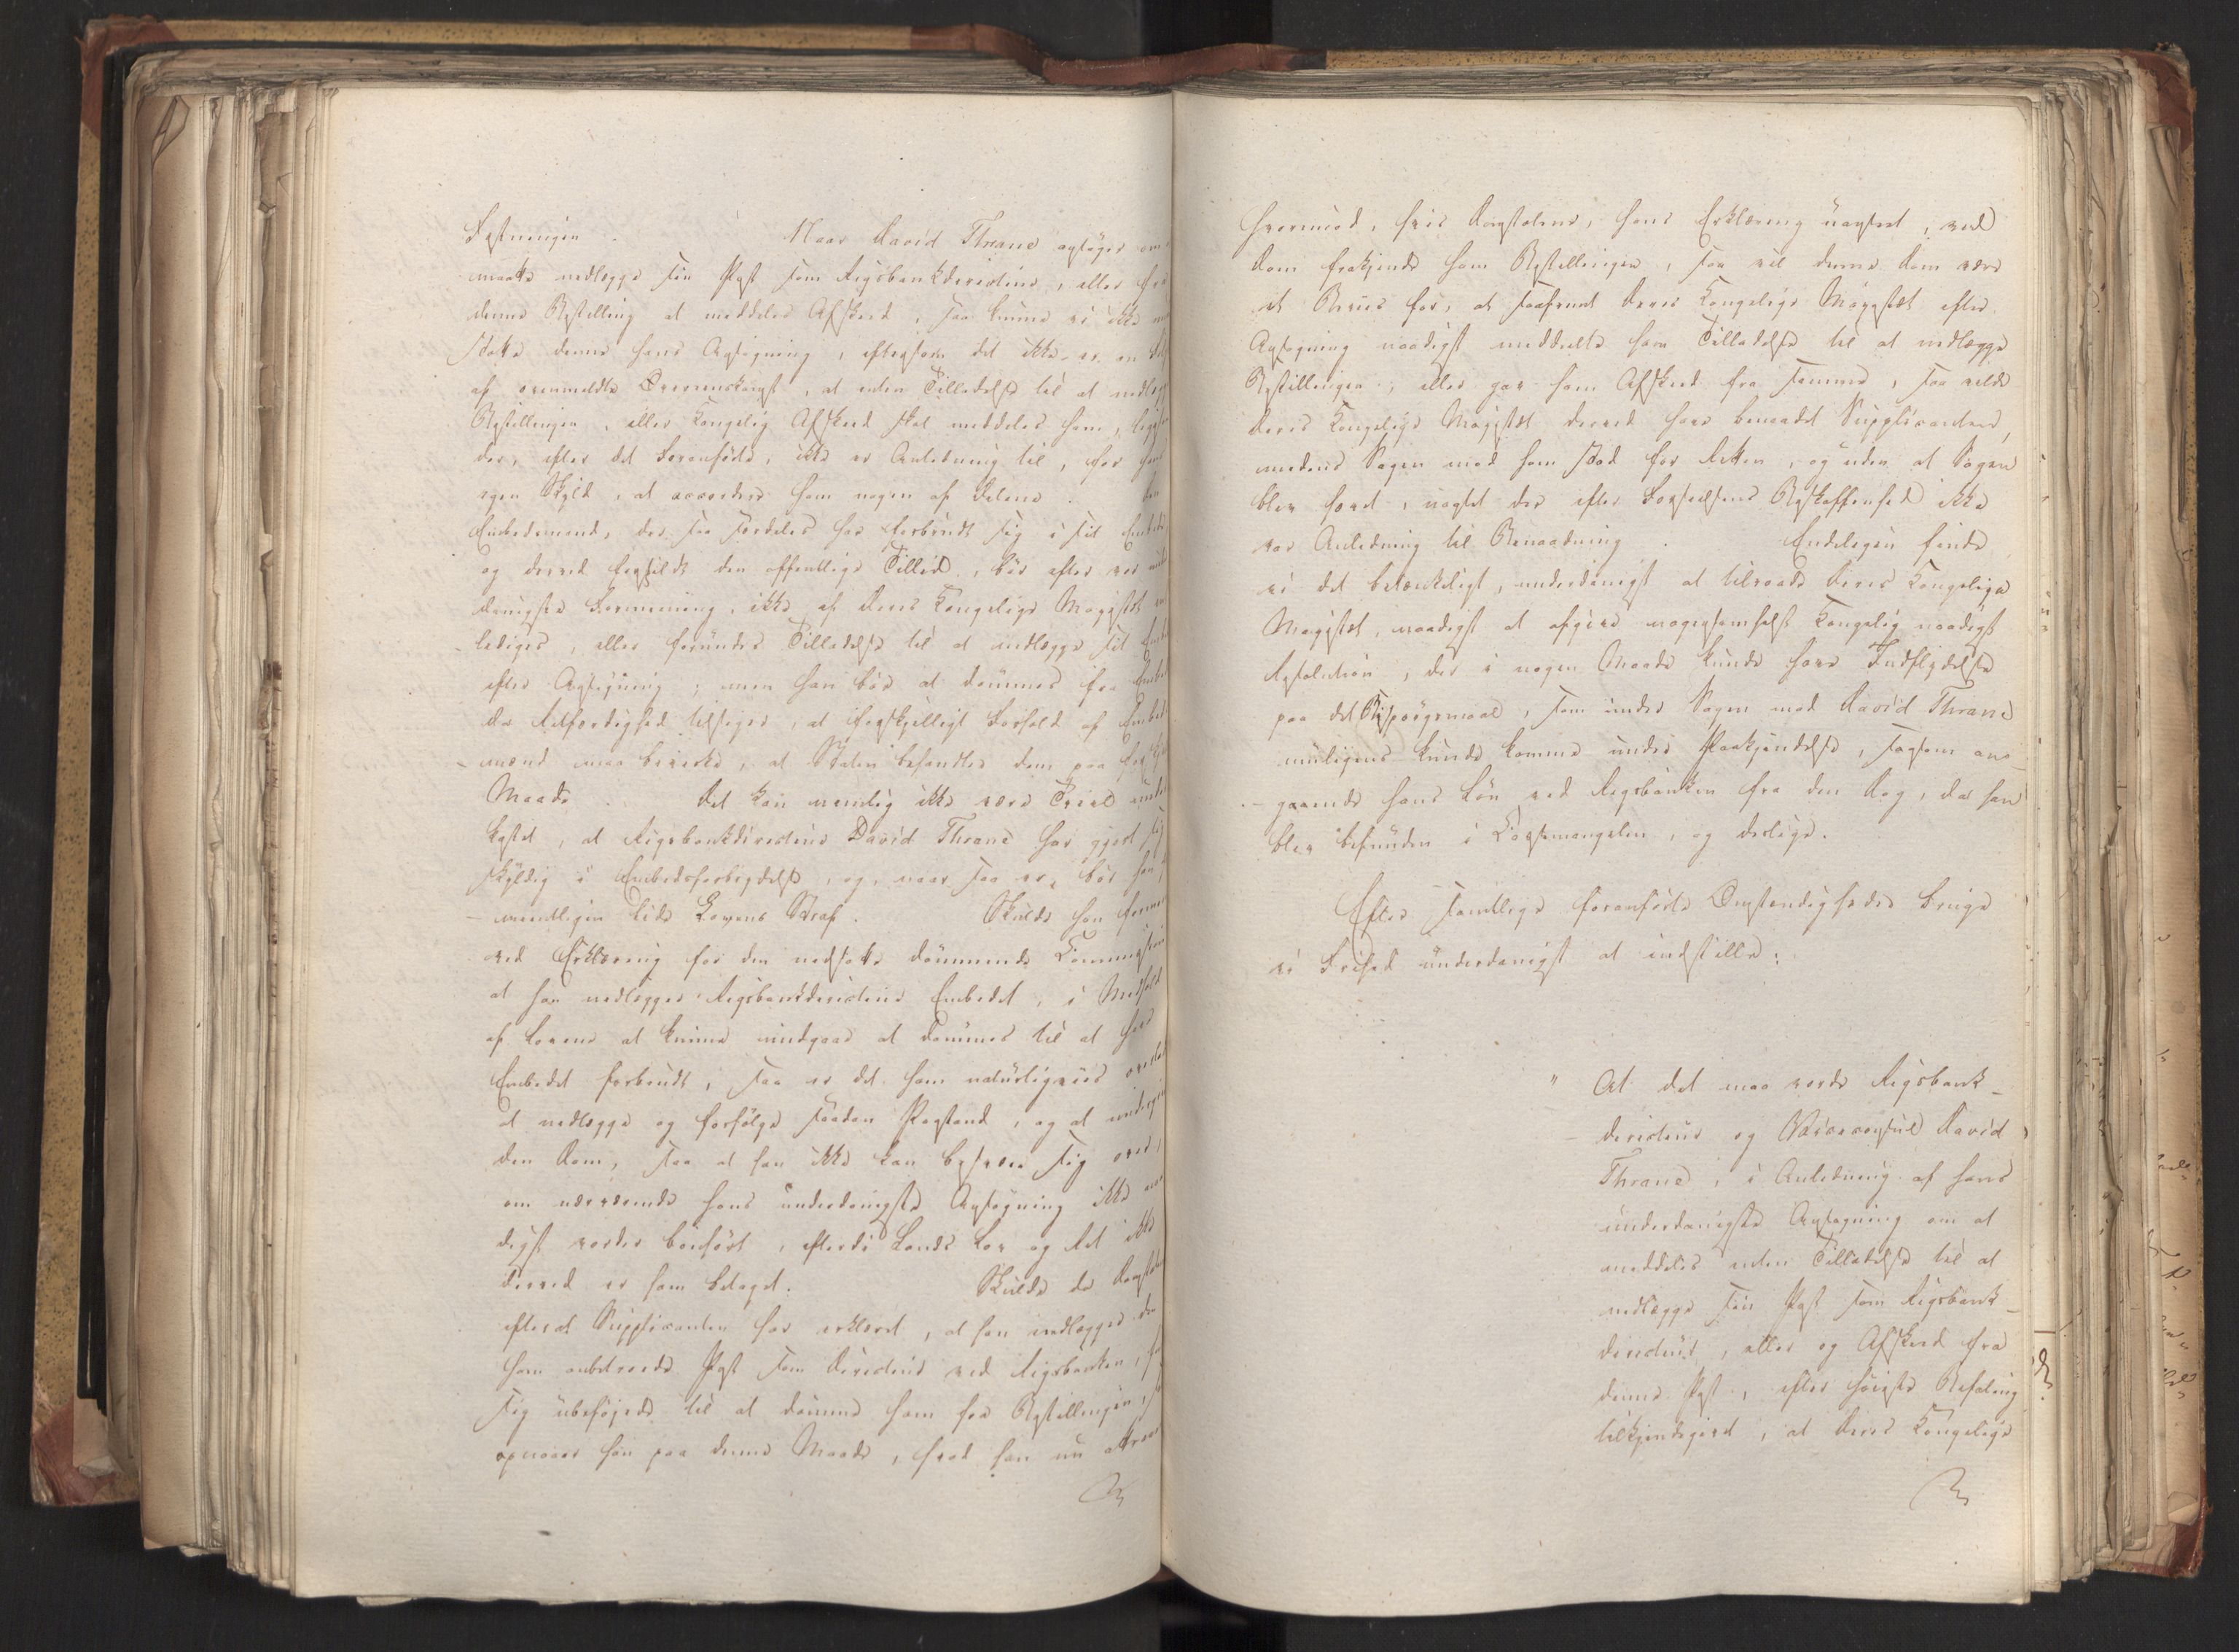 Dyssningen. Naar David Thrane ansøger om
maatte nedlægge sin Post som Rigsbankdirecteur, eller fra
denne Bestilling at meddeles Afskeed, saa kunne vi ikke
støtte denne hans Ansøgning, eftersom det ikke er en
af ovenmeldte Overeenskomst, at enten Tilladelse til at nedlægge
Bestillingen, eller Kongelig Afskeed skal meddeles ham, ligesom
der, efter det Foranførte, ikke er Anledning til, for hans
egen Skyld, at accordere ham nogen af Delene. Den
Embedsmand, der saa særdeles har forbrudt sig i sit Embede
og derved forspildt den offentlige Tillid, bør efter vor under
danigste Formening, ikke af Deres Kongelige Majestæt
lediges, eller forundes Tilladelse til at nedlægge sit
efter Ansøgning; men han bør at dømmes fra Embedet
da Retfærdighed tilsiger, at forskjelligt Forhold af Embeds
mænd maa bevirke, at Staten behandler dem paa forskjellig
Maade. Det kan nemlig ikke være Tvivl under
kastet, at Rigsbankdirecteur David Thrane har gjort sig
skyldig i Embedsforbrydelse, og, naar saa er, bør han
nemligen lide Lovens Straf. Skulde han formene
ved Erklæring for den nedsatte dømmende Commission
at han nedlægger Rigsbankdirecteur Embedet, i Medhold
af Lovene at kunne undgaae at dømmes til at have
Embedet forbrudt, saa er det ham naturligviis
at nedlægge og forfølge saadan Paastand, og at
den Dom, saa at han ikke kan besvære sig over,
om nærværende hans underdanigste Ansøgning ikke naa
digst vorder bønhørt, efterdi Lands Lov og Ret ikke
derved er ham betaget. Skulde da Domstolen
efterat Supplicanten har erklæret, at han nedlægger den
ham anbetroede Post som Directeur ved Rigsbanken,
sig ubeføjede til at dømme ham fra Bestillingen,
opnaaer han paa denne Maade, hvad han nu attraaer
hvorimod, hvis Domstolene, hans Erklæring uagtet, ved
Dom frakjende ham Bestillingen, saa vil denne Dom være
et Beviis for, at saafremt Deres Kongelige Majestæt efter
Ansøgning naadigst meddeelte ham Tilladelse til at nedlægge
Bestillingen, eller gav ham Afskeed fra samme, saa vilde
Deres Kongelige Majestæt derved have benaadet Supplicanten,
medens Sagen mod ham stod for Retten, og uden at Sagen
blev hørt, uagtet der efter Forseelsens Beskaffenhed ikke
var Anledning til Benaadning. Endeligen finde
vi det betænkeligt, underdanigst at tilraade Deres Kongelige
Majestæt, naadigst at afgive nogensomhelst Kongelig naadigst
Resolution, der i nogen Maade kunde have Indflydelse
paa det Spørgsmaal, som under Sagen mod David Thrane
muligens kunde komme under Paakjendelse, saasom an-
gaaende hans Løn ved Rigsbanken fra den Dag, da han
blev befunden i Cassemangelen, og deslige.
Efter samtlige foranførte Omstændigheder bruge
vi Frihed underdanigst at indstille:
" At det maa vorde Rigsbank-
directeur og Vareconsul David
Thrane, i Anledning af hans
underdanigste Ansøgning om at
meddeles enten Tilladelse til at
nedlægge sin Post som Rigsbank-
directeur, eller og Afskeed fra
denne Post, efter høieste Befaling
tilkjendegivet, at Deres Kongelige